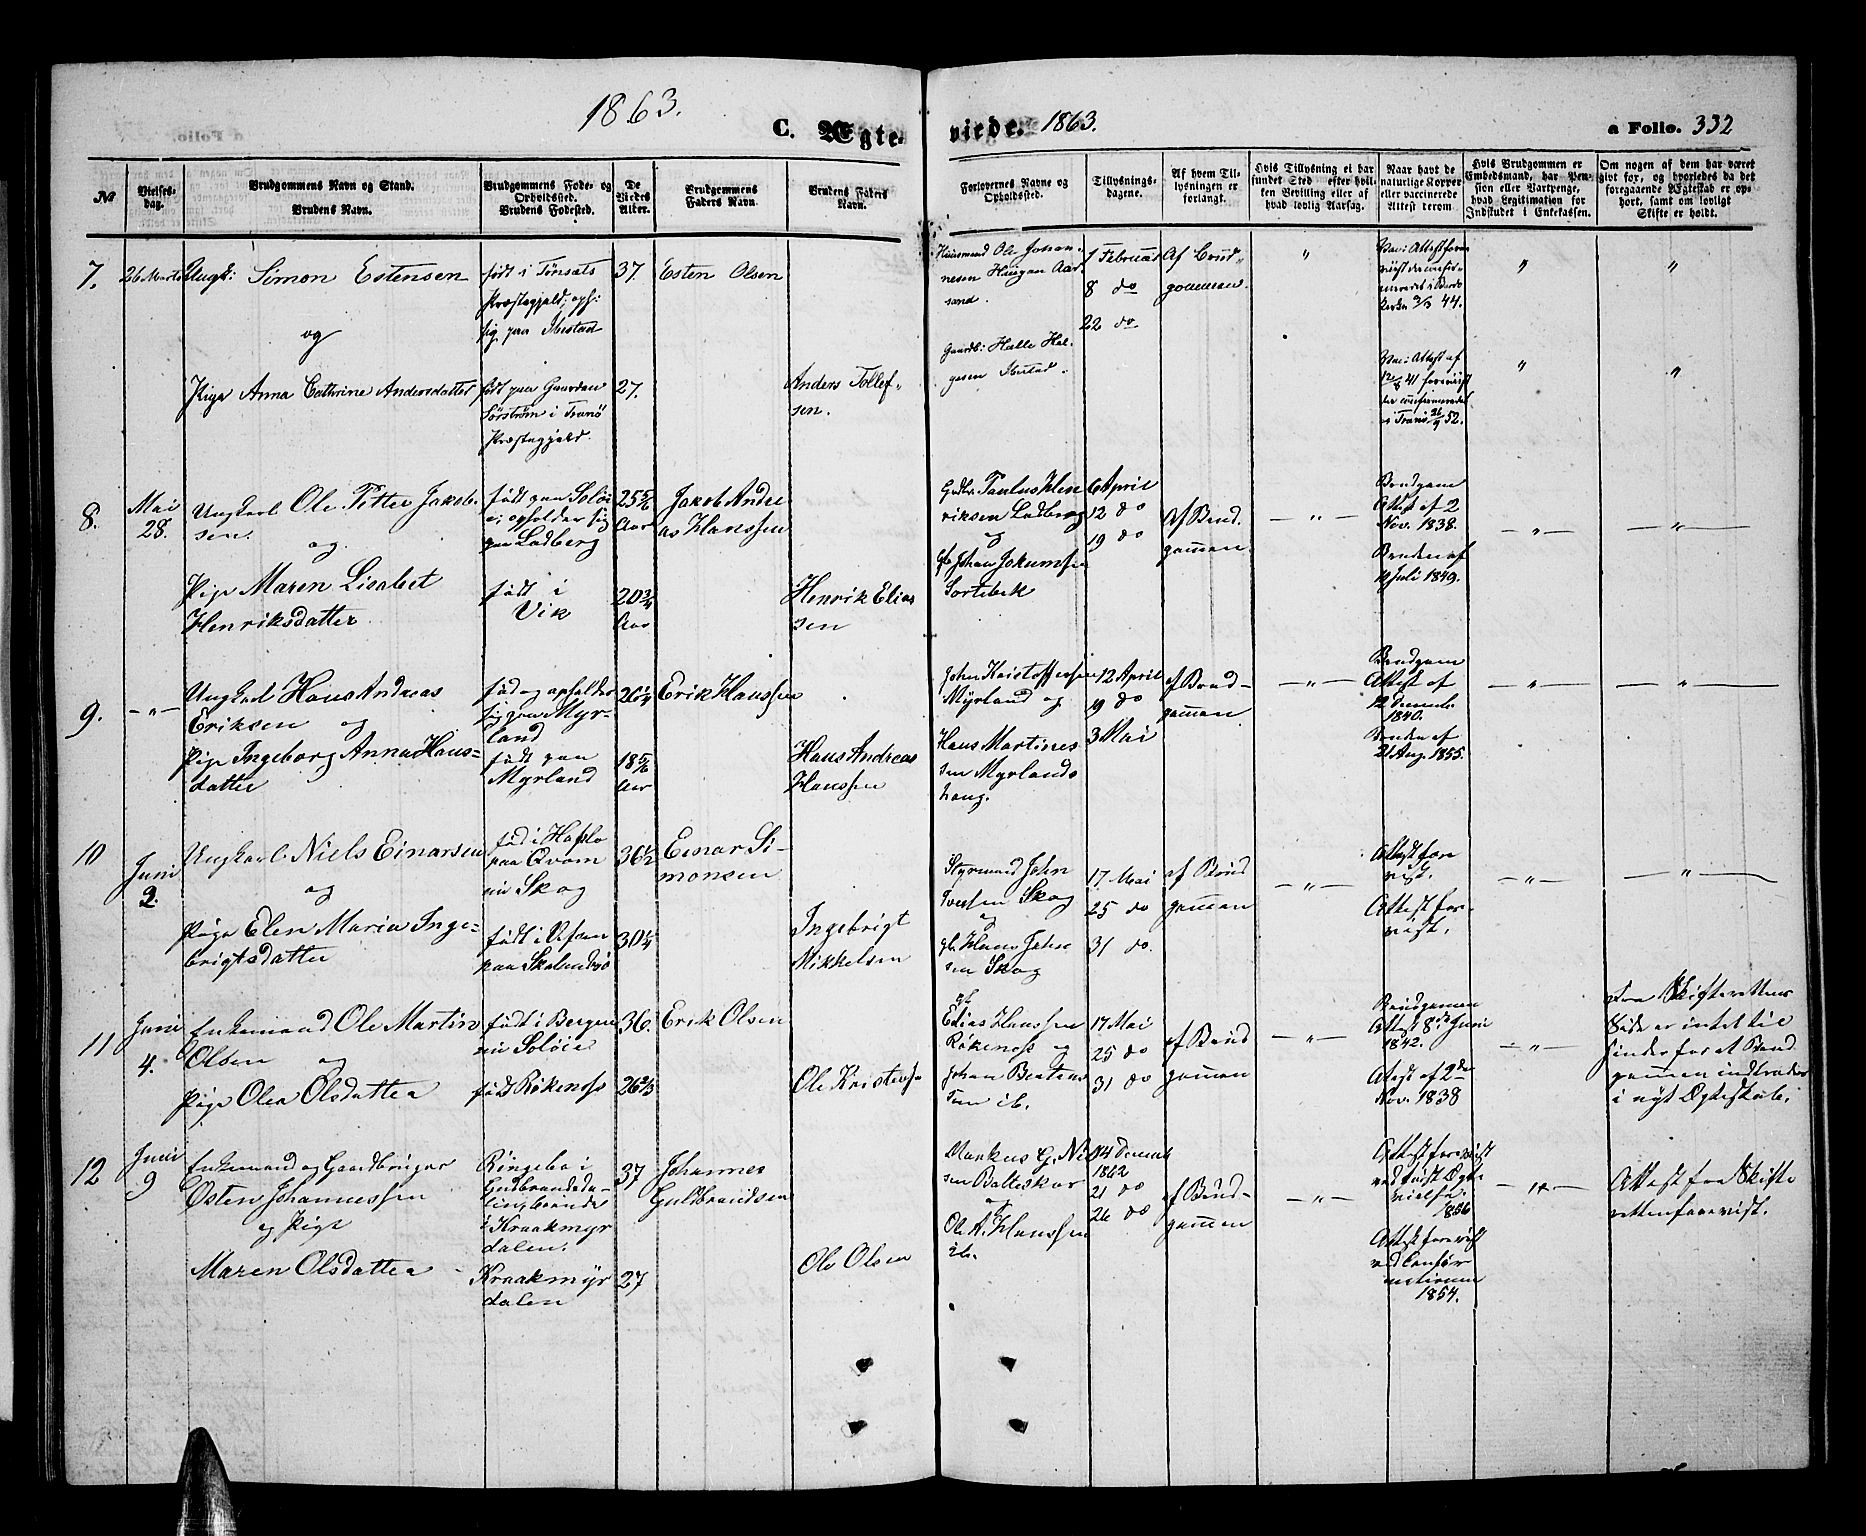 1863.
C. Ægte-
viede.
1863.
a Folio. 332
№
Vielses-
dag.
Brudgommens Navn og Stand.
Brudens Navn.
Brudgommens Føde- og
Opholdssted.
Brudens Fødested.
De
Viedes
Alter.
Brudgommens
Faders Navn.
Brudens Faders
Navn.
Forlovernes Navne og
Opholdssted.
Tillysnings-
dagene.
Af hvem Til-
lysningen er
forlangt.
Hvis Tillysning ei har
fundet Sted, efter hvil-
ken Bevilling eller af
hvad lovlig Aarsag.
Naar havt de
naturlige Kopper
eller vaccinerede
Attest derom.
Hvis Brudgommen er
Embedsmand, har Pen-
sion eller Vartpenge,
hvad Legitimation for
Indskudet i Enkekassen.
Om nogen af dem har været
gift før, og hvorledes da det
foregaaende Ægteskab er op-
hørt, samt om lovligt
Skifte er holdt.
7.
26 Marts
Ungk: Simon Estensen
og
Pige Anna Cathrine Andersdatter
født i Tønsæts
Præstegjeld, oph:
sig paa Ibestad
født paa Gaarden
Sørstrøm i Tranø
Præstegjeld.
37.
27.
Esten Olsen
Anders Tollef-
sen.
Huusmand Ole Johan-
nesen Haugan Aar-
sand.
Gaardb: Halle Hal-
gesen Ibestad.
1 Februar
8 do
22 do
Af Brud-
gommen.
"
3/3 44.
Vac: Attest af
12/8 41 foreviist
der confirmeredes
i Tranø 26/9 52.
"
"
"
"
8.
Mai
28.
Ungkarl Ole Petter Jakob-
sen. og
Pige Maren Lisabet
Henriksdatter
født paa Soløi
a; opholder sig
paa Ladberg
født i
Vik
25 5/6
Aar
20 3/4
Aar
Jakob Andre
as Hanssen
Henrik Elias
sen
Gdbr. Paulus Hen
riksen Ladberg
og
gb Johan Jokumsen
Sortebek
6 April
12 do
19 do
af Brud-
gommen.
— " —
Brudgom
Attest af 2
Nov. 1838.
Bruden af
Juli 1849.
— " —
— " —
9.
— " —
Ungkarl Hans Andreas
Eriksen og
Pige Ingeborg Anna Hans-
datter
fød og opholder
sig paa Myr-
land
født paa
Myrland
26 1/4
18 5/6
Aar
Erik Hanssen
Hans Andreas
Hanssen
John Kristoffersen
Myrland og
Hans Martines
sen Myrlands
haug.
12 April
19 do
3 Mai
af Brud-
gommen
— " —
Brudgom
Attest af
12 Decemb.
1840.
Bruden af
21 Aug. 1855.
— " —
— " —
10
Juni
2.
Ungkarl Niels Einarsen
og
Pige Elen Maria Inge-
brigtsdatter
fød i Hafslo
paa Qvam
nu Skog
født i Ofoten
paa
36 1/2
30 1/4
Einar Si-
monsen
Ingebrigt
Mikkelsen
Styrmand John
Iversen Skog
og
gb. Hans John
sen Skog
17 Mai
25 do
31 do.
af Brud
gommen
— " —
Attest fore
vist.
Attest fore-
vist.
— " —
— " —
11
Juni
4.
Enkemand Ole Martin
Olsen og
Pige Olea Olsdatter
født i Bergen
nu Soløia
født Røkenæs
36.
26 2/3
Erik Olsen
Ole Kristens.
gb
Edias Hanssen
Røkenæs og
Johan Beatus
17 Mai
25 do
31 do
af Brud
gommen
— " —
Brudgommen
Attest 8de Juni
1842.
Attest af 2den
Nov. 1838
— " —
Fra Skifterettens
Side er intet til
hinder for at Brud
gommen indtræder
i nyt Ægteskab.
12
Juni
9
Enkemand og Gaardbruger
Østen Johannessen
og Pige
Maren Olsdatter
Ringebo i
Gudbrandsda-
len,
i Kraakmyr
dalen.
Kraakmyr
dalen
37
27
Johannes
Gulbrandsen
Ole Olsen
Markus G. Nil
sen Balteskar
og
Ole A. Hanssen
ib.
14 Decemb
1862
21 do
26 do
af Brud-
gommen
— " —
Attest forevist
ved først Ægte
vielse.
1856
Attest forevist
ved Confir
mationen
1854.
— " —
Attest fra Skifte
retten forevist.